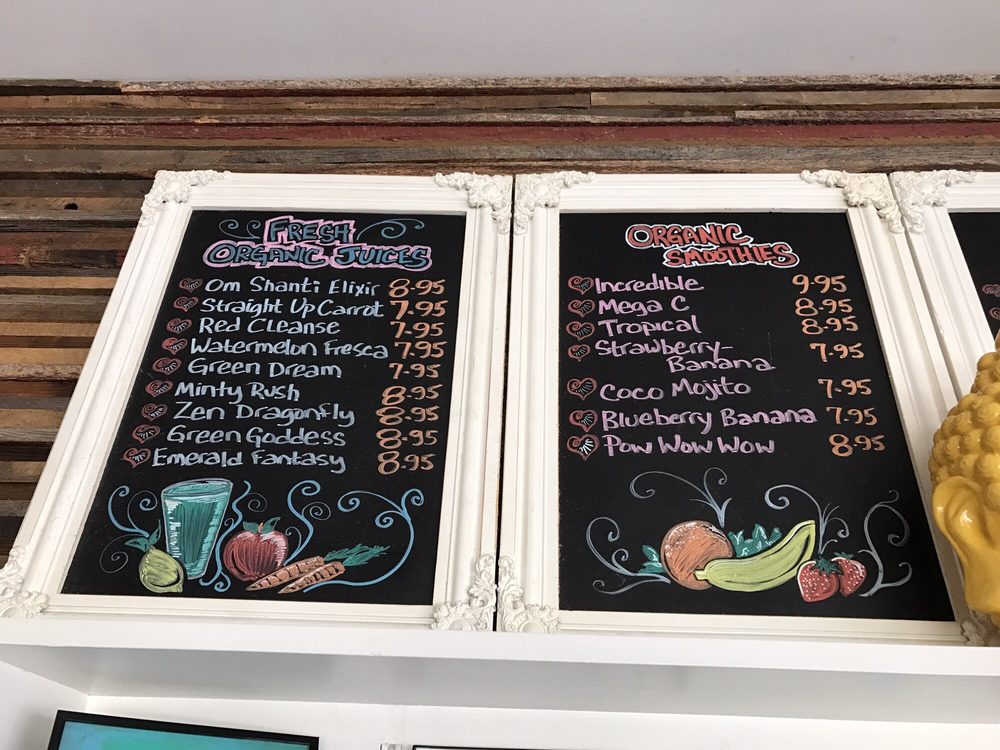 FRESH
ORGANIC JUICES
Om Shanti Elixir 8.95
Straight Up Carrot 7.95
Red Cleanse 7.95
Watermelon Fresca 7.95
Green Dream 7.95
Minty Rush 8.95
Zen Dragonfly 8.95
Green Goddess 8.95
Emerald Fantasy 8.95
ORGANIC
SMOOTHIES
Incredible 9.95
Mega C 8.95
Tropical 8.95
Strawberry-
Banana 7.95
Coco Mojito 7.95
Blueberry Banana 7.95
Pow Wow Wow 8.95